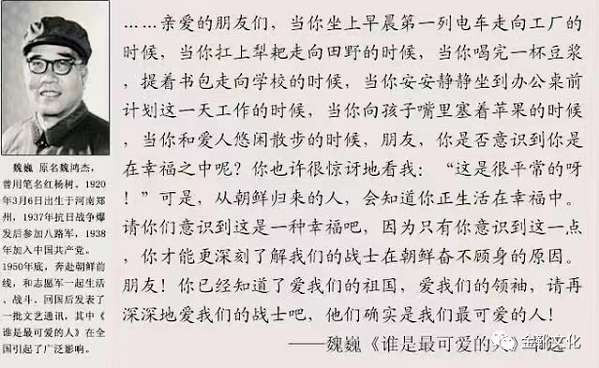 ……亲爱的朋友们，当你坐上早晨第一列电车走向工厂的
时候，当你扛上犁耙走向田野的时候，当你喝完一杯豆浆
，提着书包走向学校的时候，当你安安静静坐到办公桌前
计划这一天工作的时候，当你向孩子嘴里塞着苹果的时候
，当你和爱人悠闲散步的时候，朋友，你是否意识到你是
在幸福之中呢？你也许很惊讶地看我：“这是很平常的呀
！”可是，从朝鲜归来的人，会知道你正生活在幸福中。
请你们意识到这是一种幸福吧，因为只有你意识到这一点
，你才能更深刻了解我们的战士在朝鲜奋不顾身的原因。
朋友！你已经知道了爱我们的祖国，爱我们的领袖，请再
深深地爱我们的战士吧，他们确实是我们最可爱的人！
——魏巍《谁是最可爱的人》节选
魏巍 原名魏鸿杰，
曾用笔名红杨树。1920
年3月6日出生于河南郑
州，1937年抗日战争爆
发后参加八路军，1938
年加入中国共产党。
1950年底，奔赴朝鲜前
线，和志愿军一起生活
、战斗。回国后发表了
一批文艺通讯，其中《
谁是最可爱的人》在全
国引起了广泛影响。
金靴文化